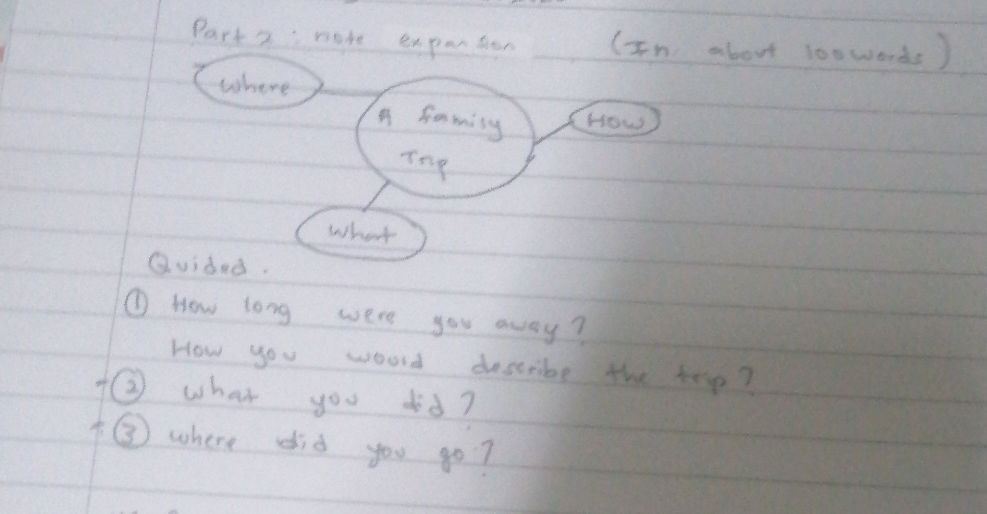 Part 2 : note expansion (In about 100 words)
where
A family
Trip
How
what
Quided.
① How long were you away?
How you would describe the trip?
② what you did?
③ where did you go?